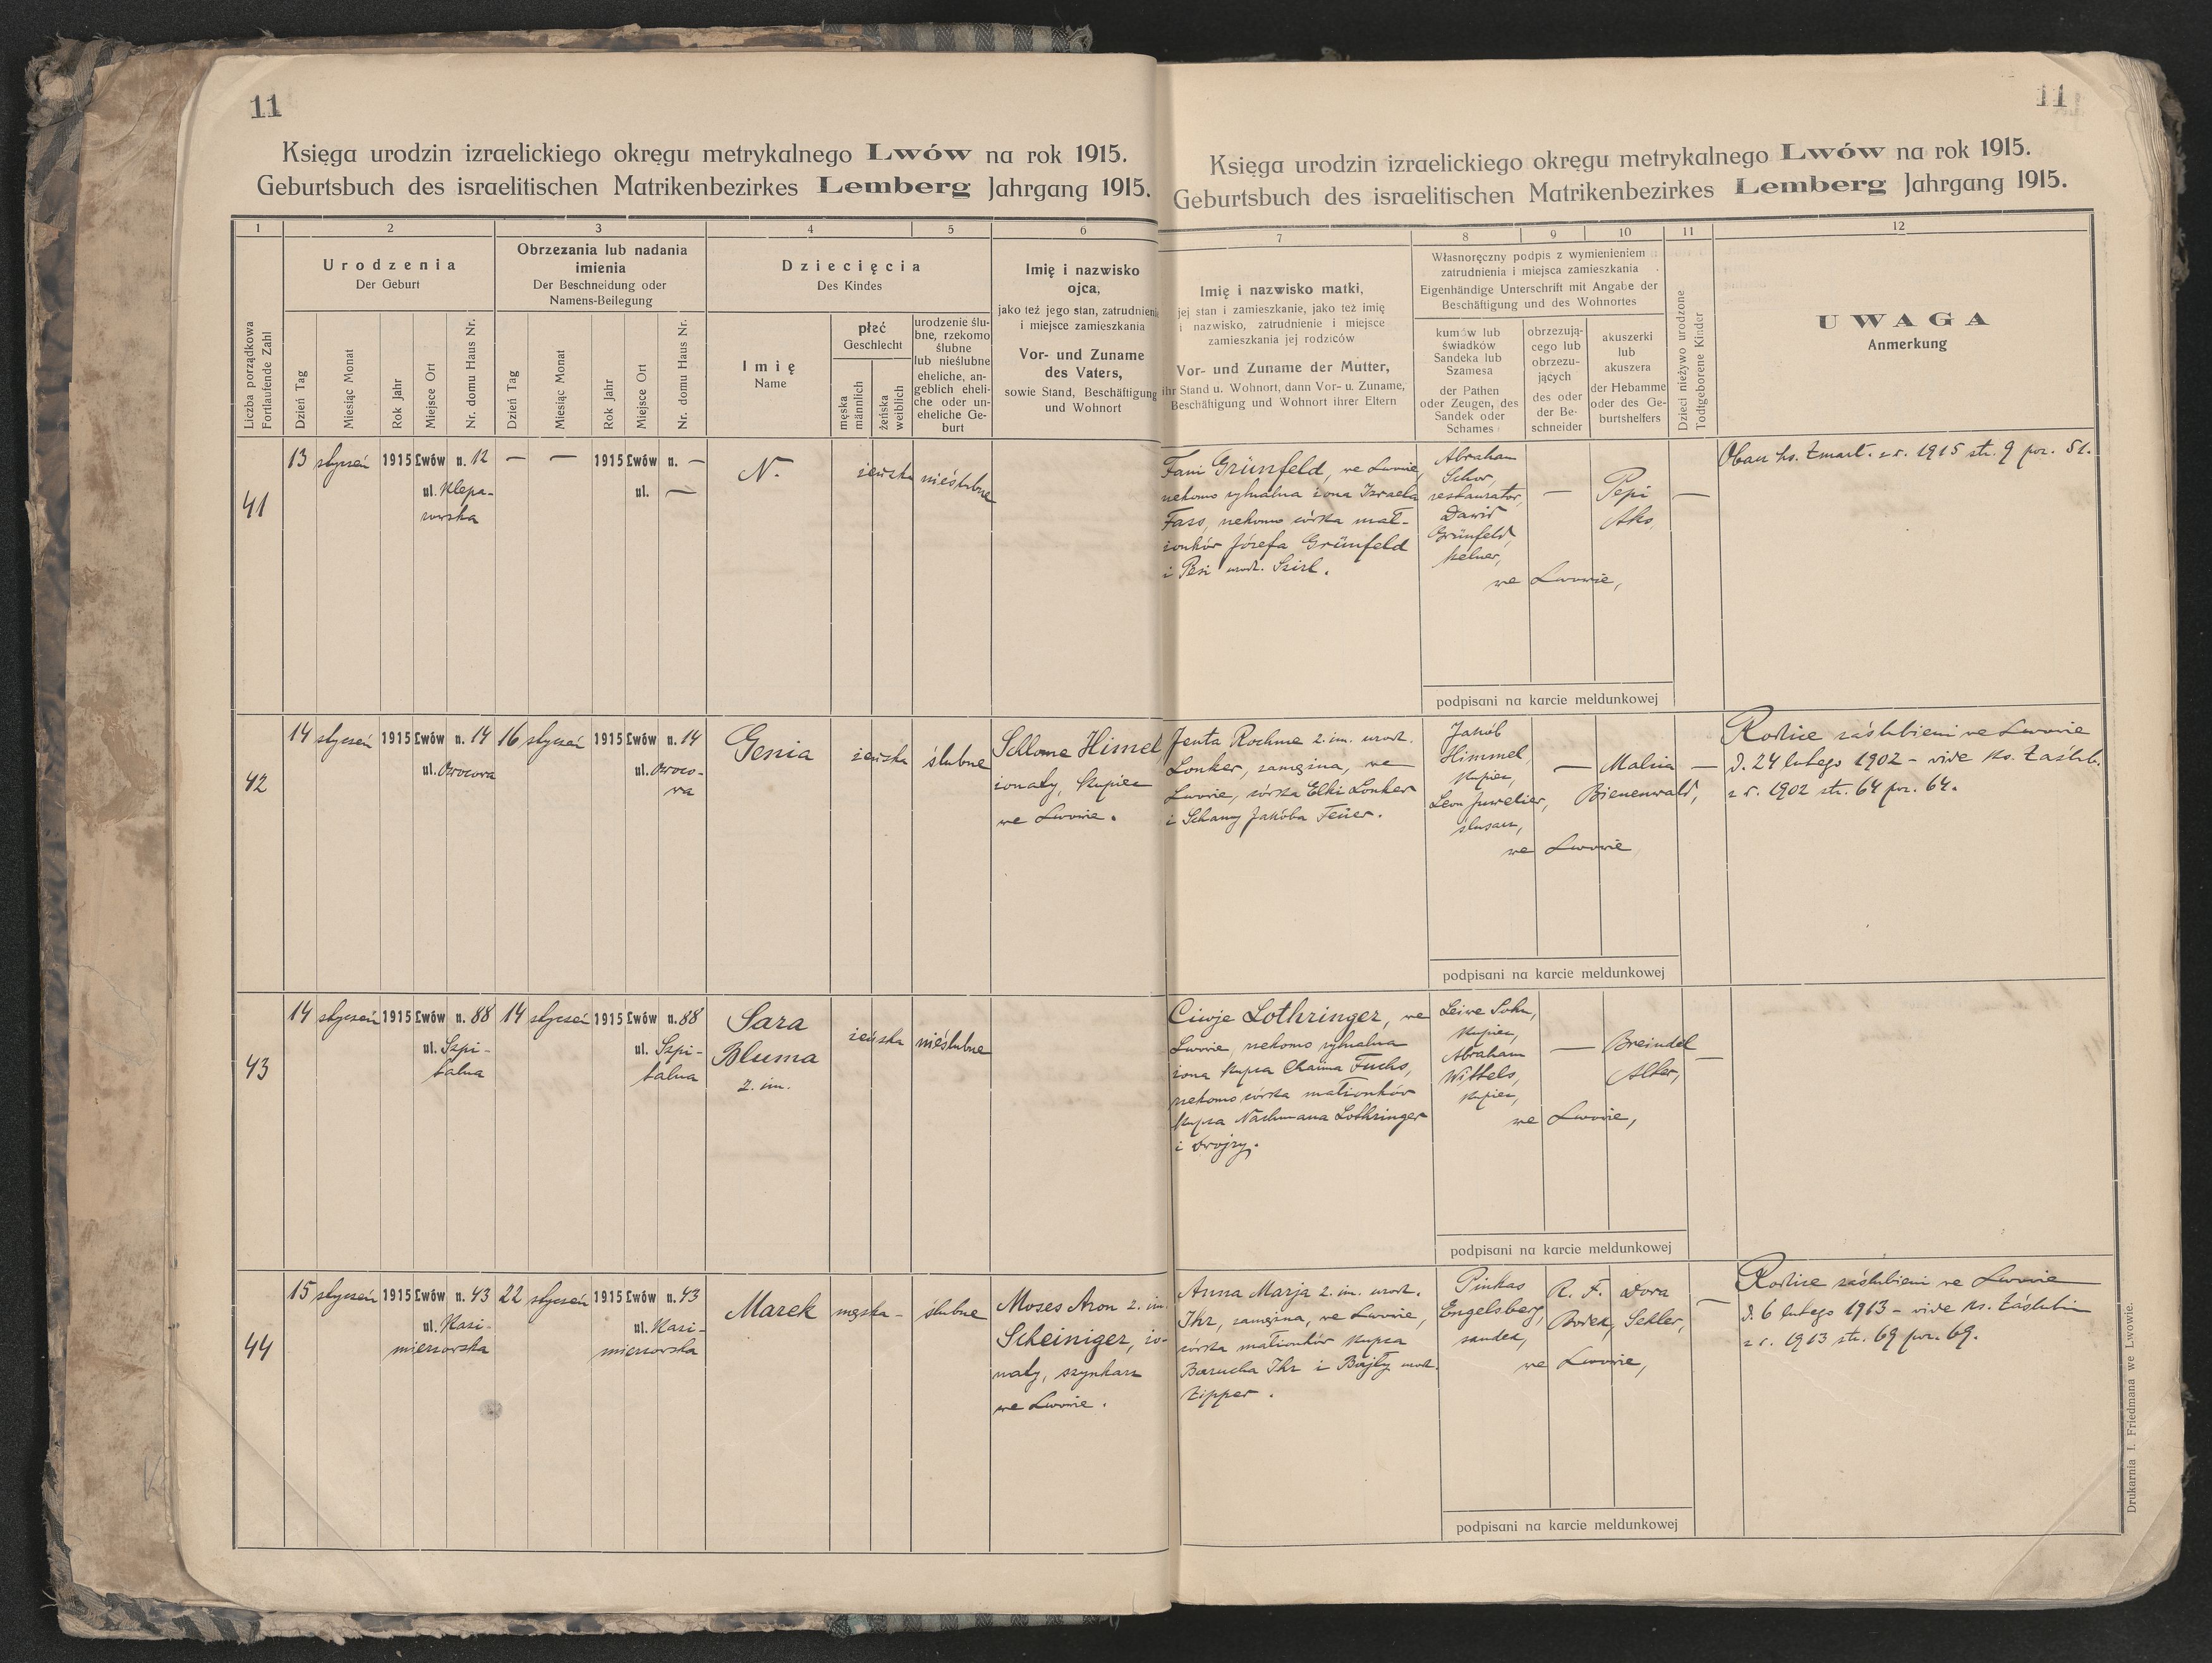 11
Księga urodzin izraelickiego okręgu metrykalnego Lwów na rok 1915.
Geburtsbuch des israelitischen Matrikenbezirkes Lemberg Jahrgang 1915.
1 2 3 4 5 6
Urodzenia
Der Geburt
Obrzezania lub nadania
imienia
Der Beschneidung oder
Namens-Beilegung
Dziecięcia
Des Kindes
Imię i nazwisko
ojca,
jako też jego stan, zatrudnienie
i miejsce zamieszkania
Vor- und Zuname
des Vaters,
sowie Stand, Beschäftigung
und Wohnort
Liczba porządkowa
Fortlaufende Zahl
Dzień Tag
Miesiąc Monat
Rok Jahr
Miejsce Ort
Nr. domu Haus Nr.
Dzień Tag
Miesiąc Monat
Rok Jahr
Miejsce Ort
Nr. domu Haus Nr.
Imię
Name
płeć
Geschlecht
męska
männlich
żeńska
weiblich
urodzenie ślu-
bne, rzekomo
ślubne
lub nieślubne
eheliche, an-
geblich eheli-
che oder un-
eheliche Ge-
burt
41
13 styczeń 1915 Lwów n. 12 — — 1915 Lwów n. —
ul. Klepa-
rowska
ul. —
N.
żeńska nieślubne
42
14 styczeń 1915 Lwów n. 14 16 styczeń 1915 Lwów n. 14
ul. Owocowa
ul. Owoco-
wa
Genia
żeńska ślubne
Schlome Himel,
żonaty, kupiec
we Lwowie.
43
14 styczeń 1915 Lwów n. 88 14 styczeń 1915 Lwów n. 88
ul. Szpi-
talna
ul. Szpi-
talna
Sara
Bluma
2. im.
żeńska nieślubne
44
15 styczeń 1915 Lwów n. 43 22 styczeń 1915 Lwów n. 43
ul. Kazi-
mierzowska
ul. Kazi-
mierzowska
Marek
męska — ślubne
Moses Aron 2. im.
Scheiniger, żo-
naty, szynkarz
we Lwowie.
11
Księga urodzin izraelickiego okręgu metrykalnego Lwów na rok 1915.
Geburtsbuch des israelitischen Matrikenbezirkes Lemberg Jahrgang 1915.
7 8 9 10 11 12
Imię i nazwisko matki,
jej stan i zamieszkanie, jako też imię
i nazwisko, zatrudnienie i miejsce
zamieszkania jej rodziców
Vor- und Zuname der Mutter,
ihr Stand u. Wohnort, dann Vor- u. Zuname,
Beschäftigung und Wohnort ihrer Eltern
Własnoręczny podpis z wymienieniem
zatrudnienia i miejsca zamieszkania
Eigenhändige Unterschrift mit Angabe der
Beschäftigung und des Wohnortes
kumów lub
świadków
Sandeka lub
Szamesa
der Pathen
oder Zeugen, des
Sandek oder
Schames
obrzezują-
cego lub
obrzezu-
jących
des oder
der Be-
schneider
akuszerki
lub
akuszera
der Hebamme
oder des Ge-
burtshelfers
Dzieci nieżywo urodzone
Todtgeborene Kinder
UWAGA
Anmerkung
Fani Grünfeld, we Lwowie,
rzekomo rytualna żona Izraela
Fass, rzekomo córka mał-
żonków Józefa Grünfeld
i Pesi urodz.
Abraham
Schor,
restaurator,
Dawid
Grünfeld,
kelner,
—
Pepi
Aks,
—
we Lwowie,
podpisani na karcie meldunkowej
Obacz ks. Zmarł. z r. 1915 str. 9 poz. 51.
Jenta Rochme 2. im. urodz.
Lonker, zamężna, we
Lwowie, córka Elki Lonker
i Schany Jakóba Feuer.
Jakób
Himmel,
kupiec,
Leon Juwelier,
ślusarz,
—
Malcia
Bienenwald,
—
we Lwowie,
podpisani na karcie meldunkowej
Rodzice zaślubieni we Lwowie
d. 24 lutego 1902 - vide ks. Zaślub.
z r. 1902 str. 64 poz. 64.
Ciwje Lothringer, we
Lwowie, rzekomo rytualna
żona kupca Chaima Fuchs,
rzekomo córka małżonków
kupca Nachmana Lothringer
i Dwojzy.
Leiwe Sohn,
kupiec,
Abraham
Wittels,
kupiec,
—
Breindel
Alter,
—
we Lwowie,
podpisani na karcie meldunkowej
Anna Marja 2. im. urodz.
Ihr, zamężna, we Lwowie,
córka małżonków kupca
Barucha Ihr i Bajły urodz.
Zipper.
Pinkas
Engelsberg,
sandek,
R. F.
Bodek,
Dora
Sekler,
—
we Lwowie,
podpisani na karcie meldunkowej
Rodzice zaślubieni we Lwowie
d. 6 lutego 1913 - vide ks. Zaślubin
z r. 1913 str. 69 poz. 69.
Drukarnia I. Friedmana we Lwowie.